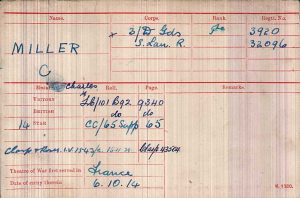 Name. Corps. Rank. Regtl. No.
MILLER × 3/D Gds Pte 3920
C S. Lan. R. 32096
Charles
Medal. Roll. Page. Remarks.
VICTORY 101 B92 9340
BRITISH do do
14 STAR CC/65 Supp 65
Clasp
Theatre of War first served in France
Date of entry therein 6.10.14